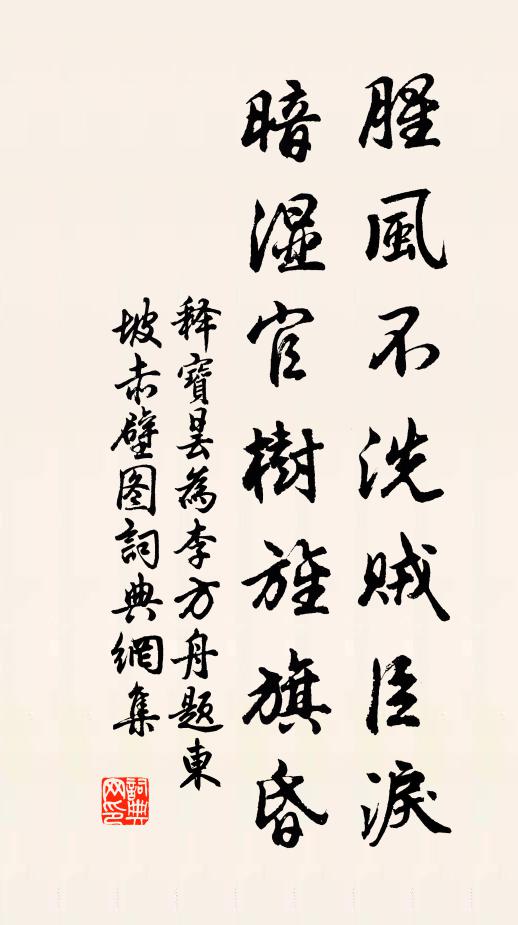 腥風不洗賊臣淚
暗濕官樹旌旗昏
釋寶曇為李方舟題東
坡赤壁图詞典網集
詞典
网印